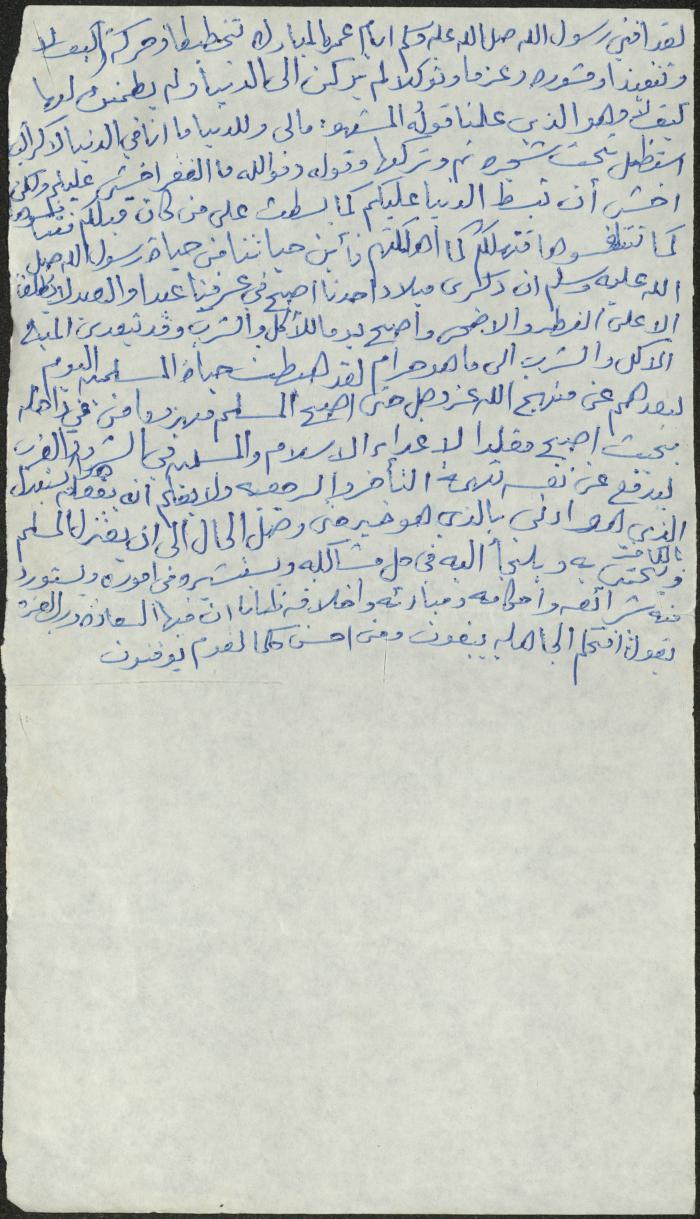 لقد افنى رسول الله صلى الله عليه وسلم ايام عمره المبارك تخطيطا وحركة
وتنفيذا ومشوره وعزما وتوكلا لم يركن الى الدنيا ولم يطمئن لها
كيف لا وهو الذي علمنا قوله المشهور: مالى وللدنيا ما انا في الدنيا الا كراكب
استظل تحت شجره ثم وتركها وقوله : فوالله ما الفقر اخشى عليكم ولكني
اخشى أن تبسط الدنيا عليكم كما بسطت على من كان قبلكم فتنافسوها
كما تنافسوها فتهلككم كما أهلكتهم فأين حياتنا من حياة رسول الله صلى
الله عليه وسلم ان ذكرى ميلاد احدنا اصبح في عرفنا عيدا والعيد لا يطلق
الا على الفطر والاضحى وأصبح يوما للأكل والشرب وقد تتعدى المباح
الاكل والشرب الى ما هو حرام لقد هبطت حياة المسلمين اليوم
لبعدهم عن منهج الله عز وجل حتى اصبح المسلم مهزوما من في داخله
بحيث اصبح مقلدا لاعداء الاسلام والمسلمين في الشرق والغرب
ليدفع عن نفسه تهمة التأخر والرجعيه ولا يعلم انه بفعله هذا استبدل
الذي هو ادنى بالذي هو خير حتى وصل الحال الى ان يعتز المسلم بالكافر
ويحتمى به ويلجأ اليه في حل مشاكله ويستشيره في اموره ويستورد
منه شرائعه واحكامه ومبادئه واخلاقه ظانا ان فيها السعاده ورب العزه
يقول افحكم الجاهليه يبغون ومن احسن حكما لقوم يوقنون